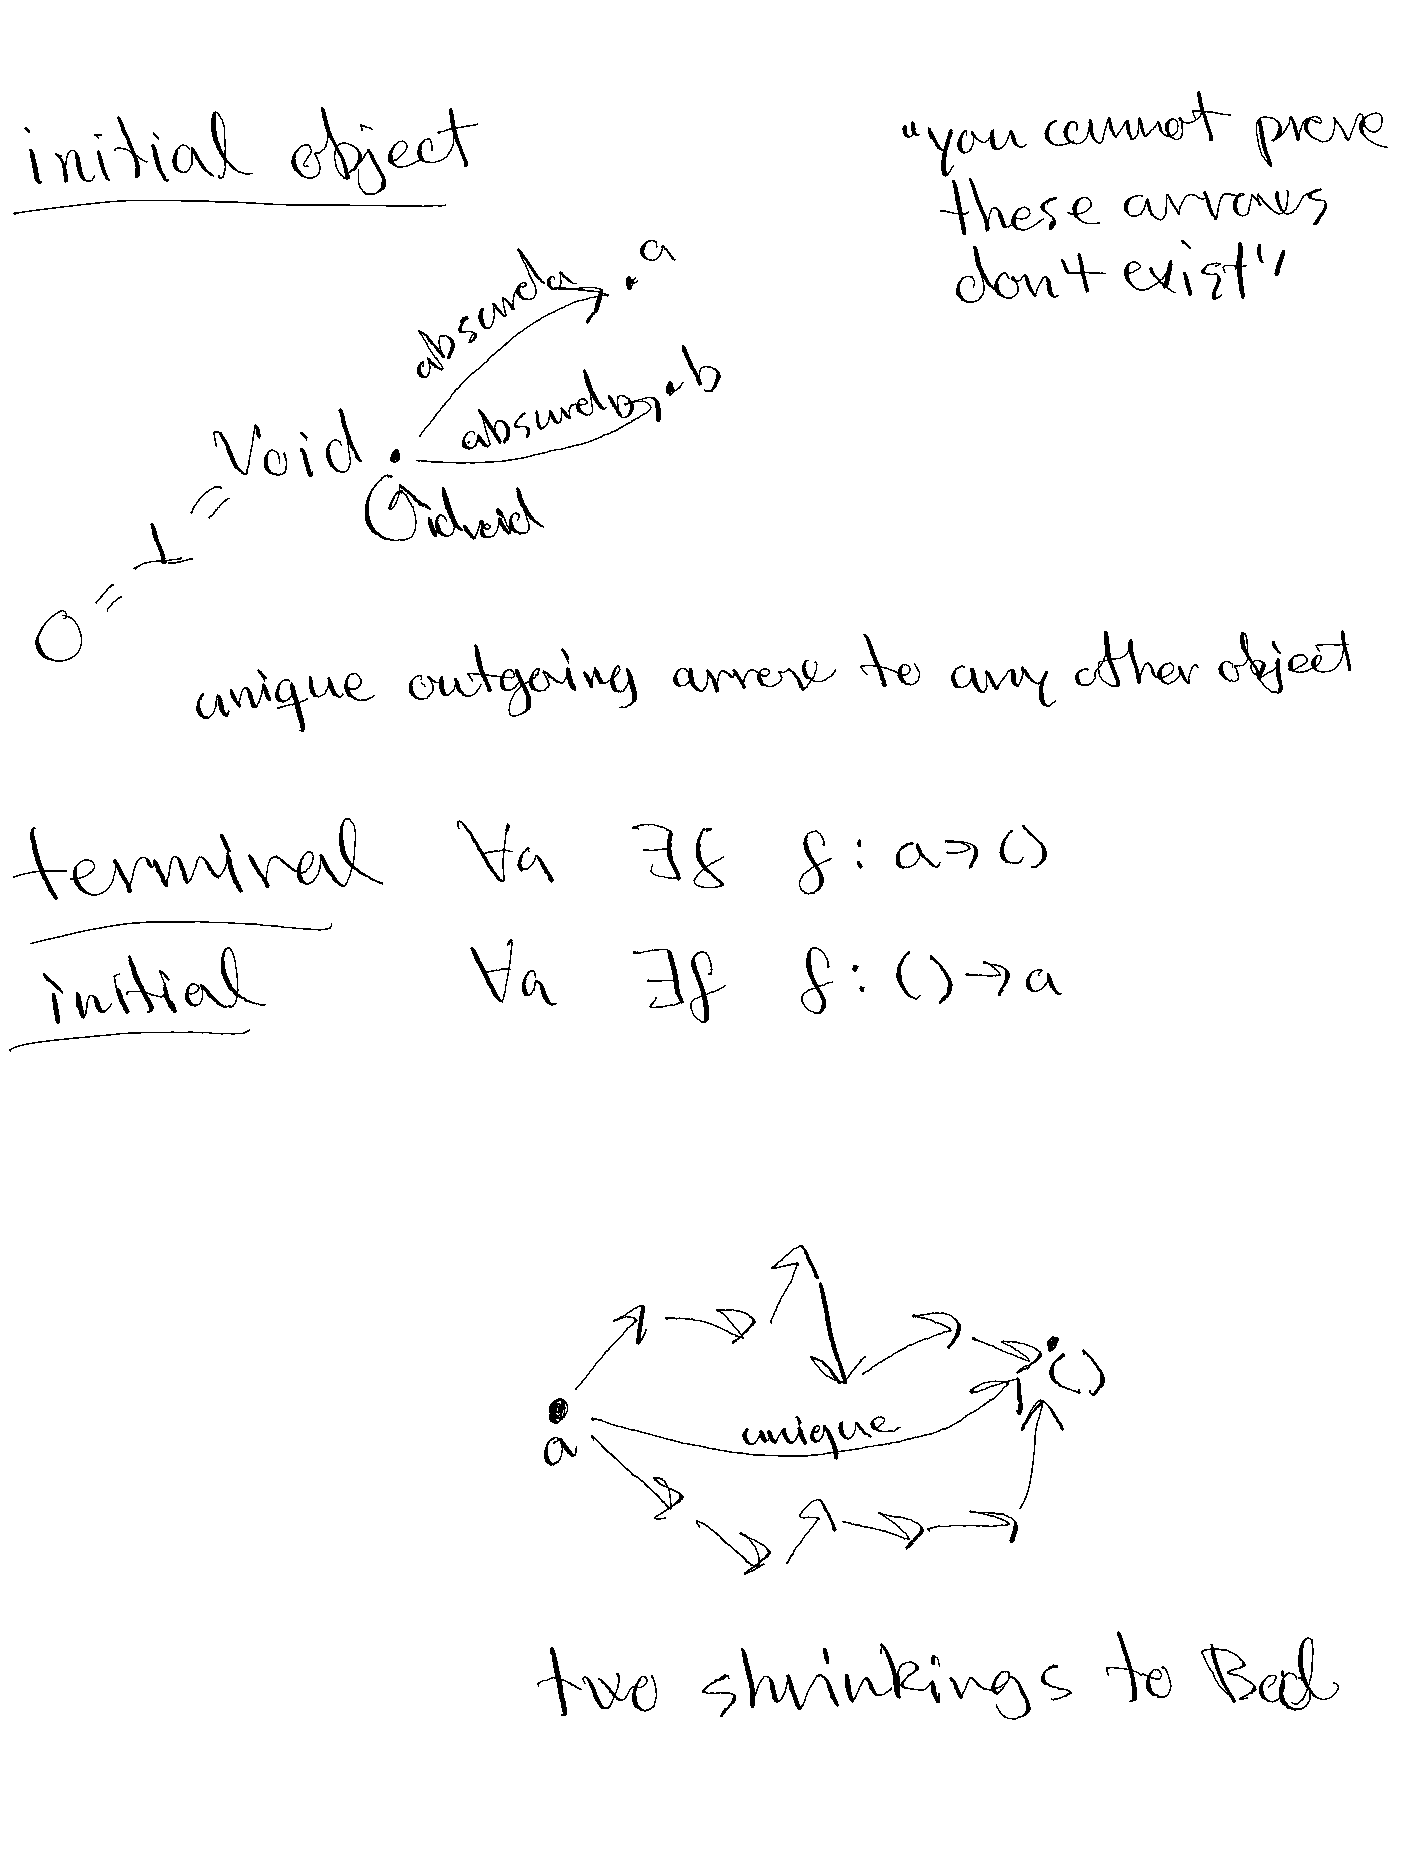 initial object
"you cannot prove
these arrows
don't exist"
absurda
a
absurdb
b
Void
idvoid
0 = ⊥ = Void
unique outgoing arrow to any other object
terminal ∀a ∃f f : a → ()
initial ∀a ∃f f : () → a
a
unique
()
two shrinkings to Bool